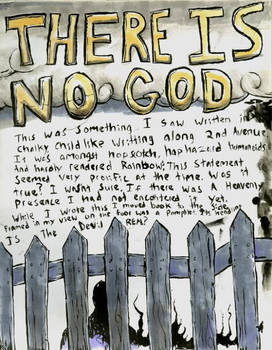 THERE IS
NO GOD
This was something I saw written in
chalky child like writing along 2nd Avenue
It was amongst hopscotch, haphazard humanoids
And hardly rendered Rainbow; This statement
seemed very prolific at the time. Was it
true? I wasn't sure, If there was A Heavenly
presence I had not encontered it yet.
While I wrote this I moved book to the side
Framed in my view on the floor was a Pamphlet. Its heading
IS The Devil REAL?